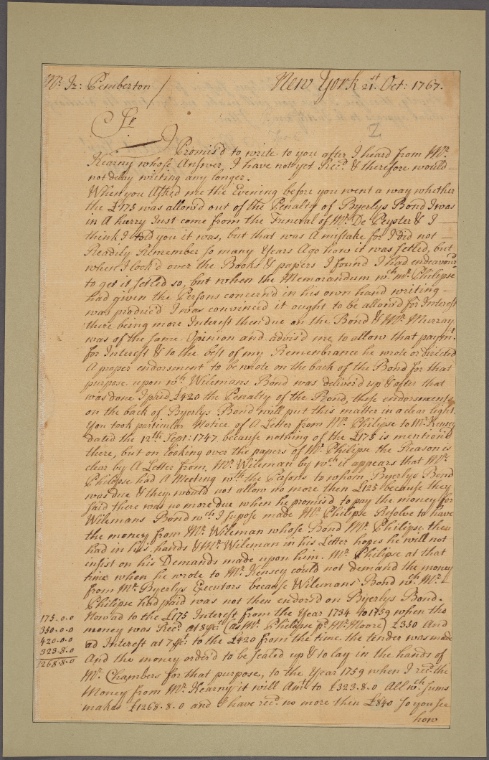 Mr. Is: Pemberton /
New York 21 Oct: 1767.
Sr.
I Promis'd to write to you after I heard from Mr.
Kearny whose Answer, I have not yet Rec'd & therefore would
not delay writing any longer.
When you Asked me the Evening before you went a way whether
the £175 was allowed out of the Penalty of Byerlys Bond I was
in A hurry Just come from the Funeral of Mr. De Peyster & I
think I told you it was, but that was A mistake for I did not
Readily Remember so many Years Ago how it was setled, but
when I look'd over the Books & papers I found I had endeavour'd
to get it setled so, but when the Memorandum wch. Mr. Philipse
had given the Persons concern'd in his own hand writing
was produc'd I was convinced it ought to be allow'd for Interest
there being more Interest then due on the Bond & Mr. Murray
was of the same Opinion and advis'd me to allow that paymt.
for Interest & to the best of my Remembrance he wrote or dictated
A proper endorsment to be wrote on the back of the Bond for that
purpose upon wch. Wilemans Bond was deliver'd up & after that
was done I paid £420 the Penalty of the Bond, those endorsments
on the back of Byerlys Bond will put this matter in a clear light
You took particular Notice of A Letter from Mr. Philipse to Mr. Kearny
dated the 12th. Sept: 1747 because nothing of the £175 is mention'd
there, but on looking over the papers of Mr. Philipse the Reason is
clear by A Letter from, Mr. Wileman by wch. it appears that Mr.
Philipse had A Meeting with the Persons to whom Byerlys Bond
was due & they would not allow no more then £123 because they
said there was no more due when he promised to pay the money for
Wilemans Bond wch. I supose made Mr. Philipse Resolve to have
the money from Mr. Wileman whose Bond Mr. Philipse then
had in his hands & Mr. Wileman in his Letter hopes he will not
insist on his Demands made upon him. Mr. Philipse at that
time when he wrote to Mr. Kearny could not demand the money
from Mr. Byerlys Executors because Wilemans Bond wch. Mr.
Philipse had paid was not then endors'd on Byerlys Bond.
Now ad to the £175 Interest from the Year 1734 to 1759 when the
money was Rec'd at 8 pCt. as Mr. Philipse pd. Mr. Moore £350 And
ad Interest at 7 pCt. to the £420 from the time the tender was made
And the money order'd to be sealed up & to lay in the hands of
Mr. Chambers for that purpose, to the Year 1759 when I rec'd the
Money from Mr. Kearny it will Amt. to £323.8.0 All wch. sums
makes £1268.8.0 and I have recd. no more then £840 so you see
how
175.0.0
350.0.0
420.0.0
323.8.0
1268.8.0